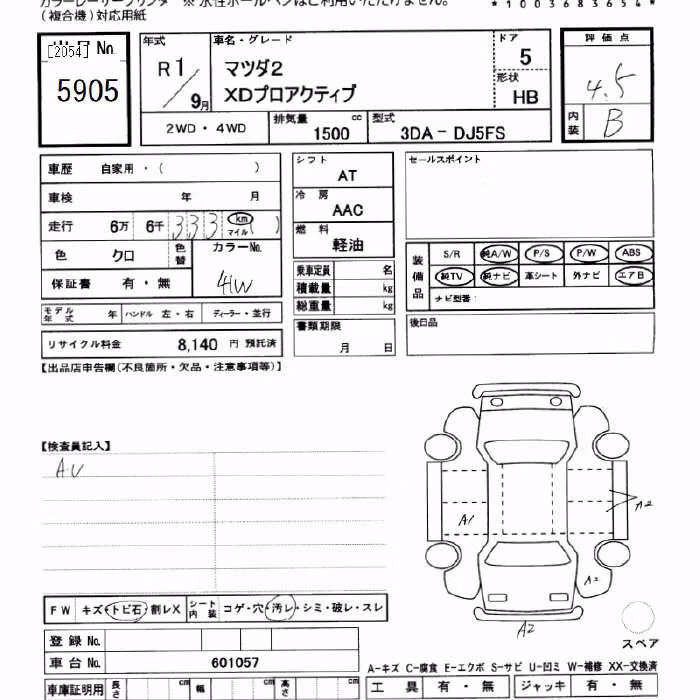 (複合機)対応用紙
*1003683654*
[2054]
出品No
5905
年式 R1/9月
車名・グレード
マツダ2
XDプロアクティブ
ドア 5
形状 HB
評価点 4.5
内装 B
2WD・4WD 排気量 1500 cc 型式 3DA-DJ5FS
車歴 自家用・( )
車検 年 月
走行 6万 6千 333 km マイル ( )
色 クロ 色替 カラーNo. 41W
保証書 有・無
モデル年式 年 ハンドル 左・右 ディーラー・並行
リサイクル料金 8,140 円 預託済
シフト AT
冷房 AAC
燃料 軽油
乗車定員 名
積載量 kg
総重量 kg
書類期限
月 日
セールスポイント
装備品 S/R 純A/W P/S P/W ABS
純TV 純ナビ 革シート 外ナビ エアB
ナビ型番:
後日品
【出品店申告欄(不良箇所・欠品・注意事項等)】
【検査員記入】
AU
A1
A2
A2
A2
スペア
FW キズ・トビ石・割レX シート内装 コゲ・穴・汚レ・シミ・破レ・スレ
登録No.
車台No. 601057
車庫証明用 長さ cm 幅 cm 高さ cm
A-キズ C-腐食 E-エクボ S-サビ U-凹ミ W-補修 XX-交換済
工具 有・無 ジャッキ 有・無